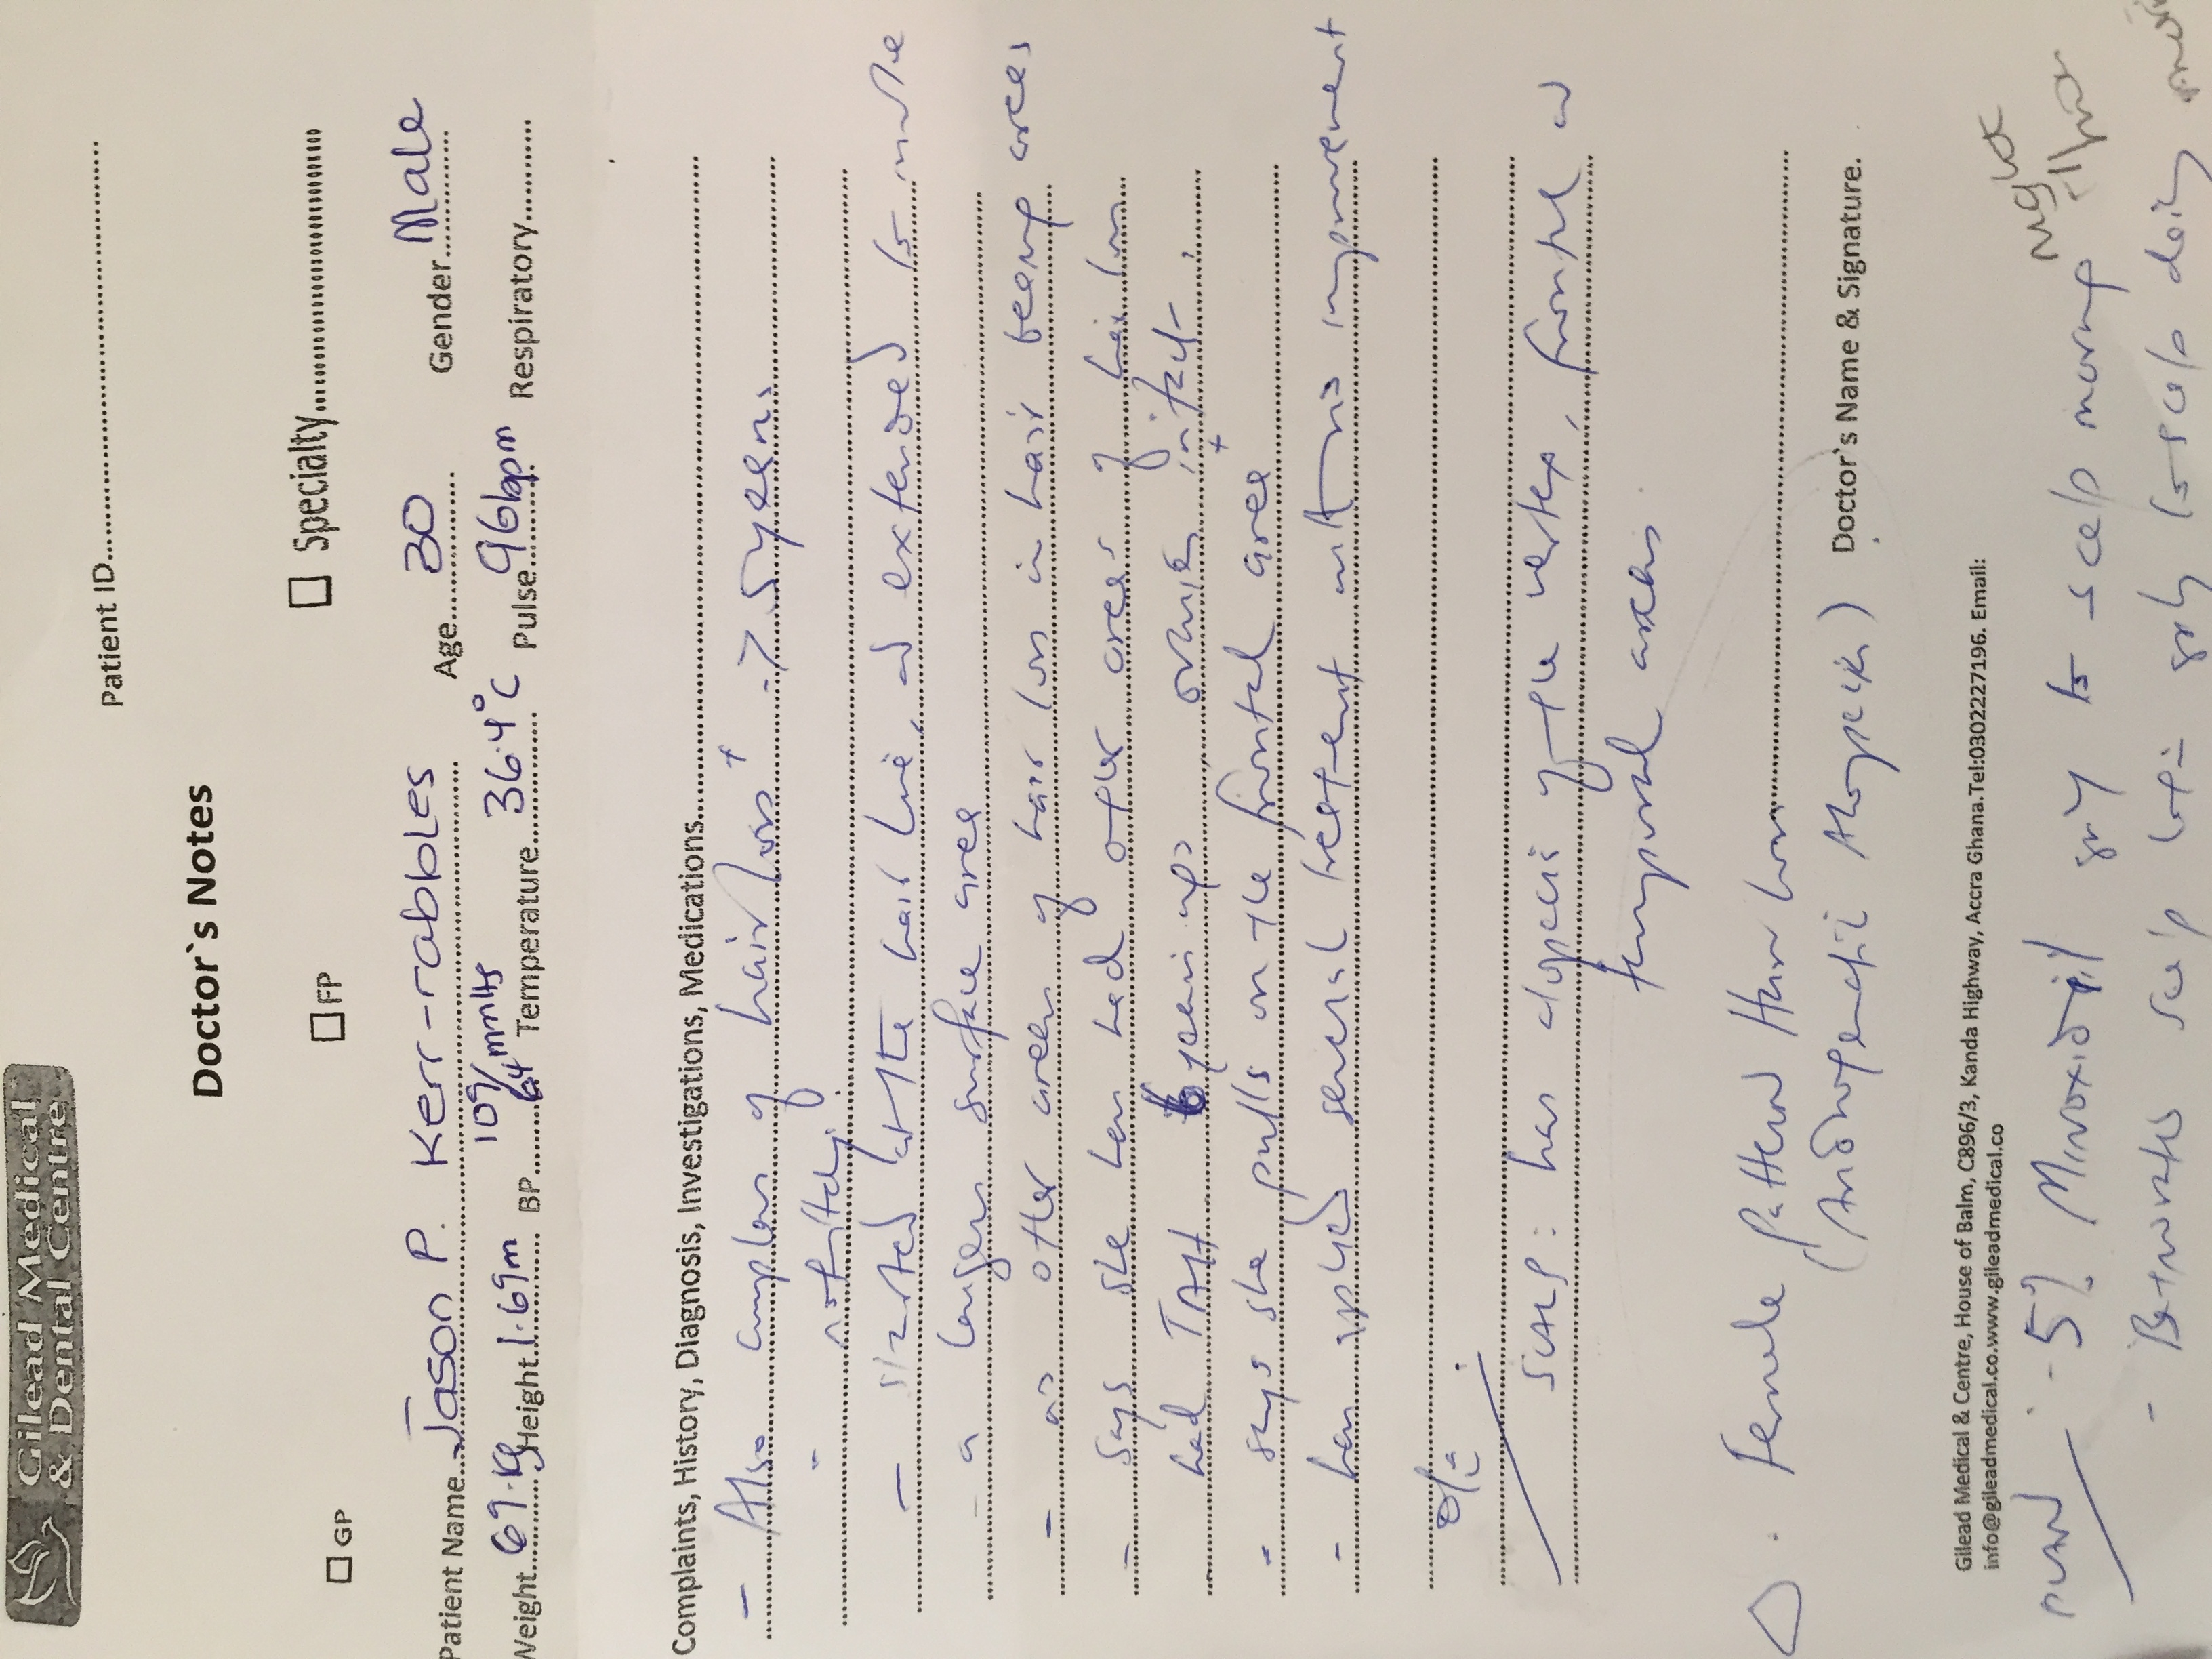 Gilead Medical
& Dental Centre
Patient ID
Doctor`s Notes
GP
FP
Specialty
Patient Name Jason P. Kerr-rabbles Age 30 Gender Male
Weight 69.kg Height 1.69m BP 109/64 mmHg Temperature 36.4°C Pulse 96bpm Respiratory
Complaints, History, Diagnosis, Investigations, Medications
- Also of hair loss + -> 5 years
- not itchy
- started at the hair line, and extended to
- a larger surface area
- no other areas of hair loss in hair areas
- says she has had other areas of hair loss
- had TAH 6 years ago ovaries intact
- says she pulls on the frontal area +
- has applied several treatment with no improvement
O/E
SCALP: has alopecia of the vertex, frontal and
temporal areas
Δ. Female Pattern Hair Loss
(Androgenetic Alopecia) Doctor`s Name & Signature.
Gilead Medical & Centre, House of Balm, C896/3, Kanda Highway, Accra Ghana.Tel:0302227196. Email:
info@gileadmedical.co.www.gileadmedical.co
night
PLAN - 5% Minoxidil to scalp morning
- scalp to scalp daily